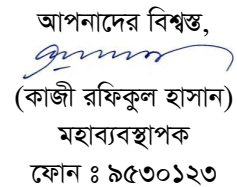 আপনাদের বিশ্বস্ত,
(কাজী রফিকুল হাসান)
মহাব্যবস্থাপক
ফোন ঃ ৯৫৩০১২৩